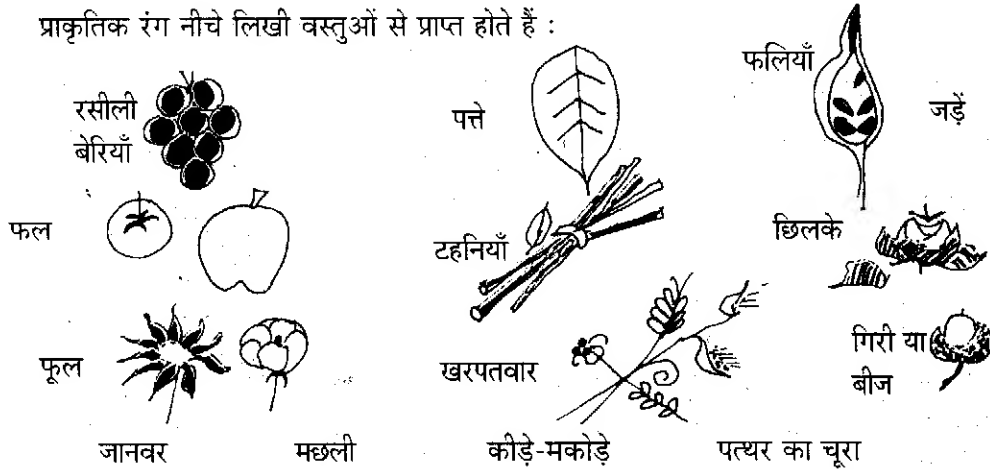 प्राकृतिक रंग नीचे लिखी वस्तुओं से प्राप्त होते हैं :
रसीली
बेरियाँ
पत्ते
फलियाँ
जड़ें
फल
टहनियाँ
छिलके
फूल
खरपतवार
गिरी या
बीज
जानवर
मछली
कीड़े-मकोड़े
पत्थर का चूरा